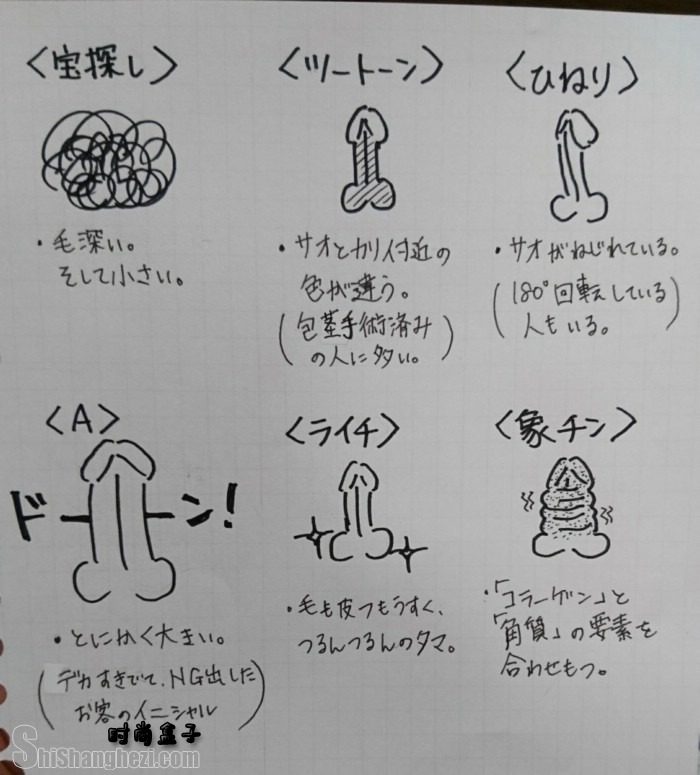 〈宝探し〉
・毛深い。
そして小さい。
〈ツートーン〉
・サオとカリ付近の
色が違う。
(包茎手術済み
の人に多い。)
〈ひねり〉
・サオがねじれている。
(180°回転している
人もいる。)
〈A〉
ドーン!
・とにかく大きい。
(デカすぎて、NG出した
お客のイニシャル)
〈ライチ〉
・毛も皮つもうすく、
つるんつるんのタマ。
〈象チン〉
・「コラーゲン」と
「角質」の要素を
合わせもつ。
时尚盒子
ShiShanghezi.com